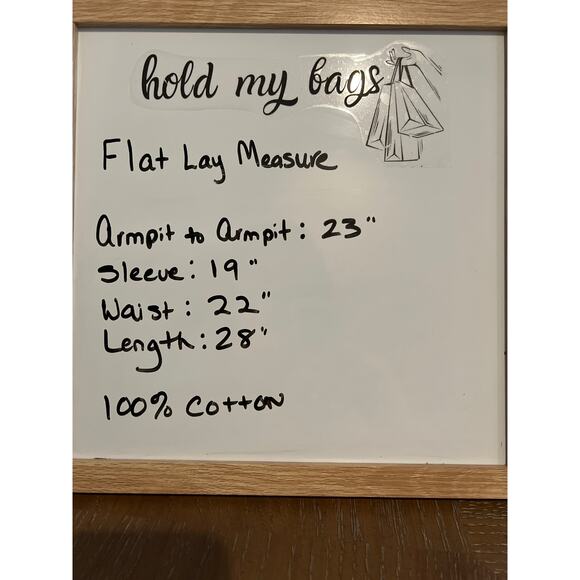 hold my bags
Flat Lay Measure
Armpit to Armpit: 23"
Sleeve: 19"
Waist: 22"
Length: 28"
100% Cotton